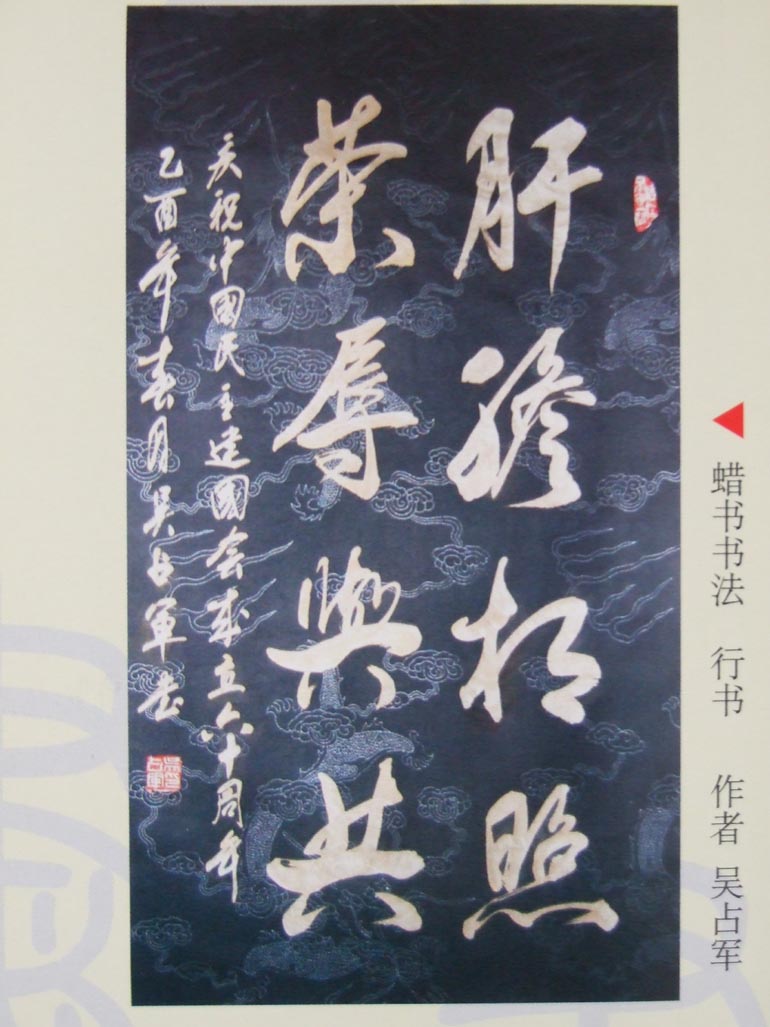 肝膽相照
榮辱與共
庆祝中國民主建國会成立六十周年
乙酉年春月吴占軍书
吴占軍
蜡书书法 行书 作者 吴占军